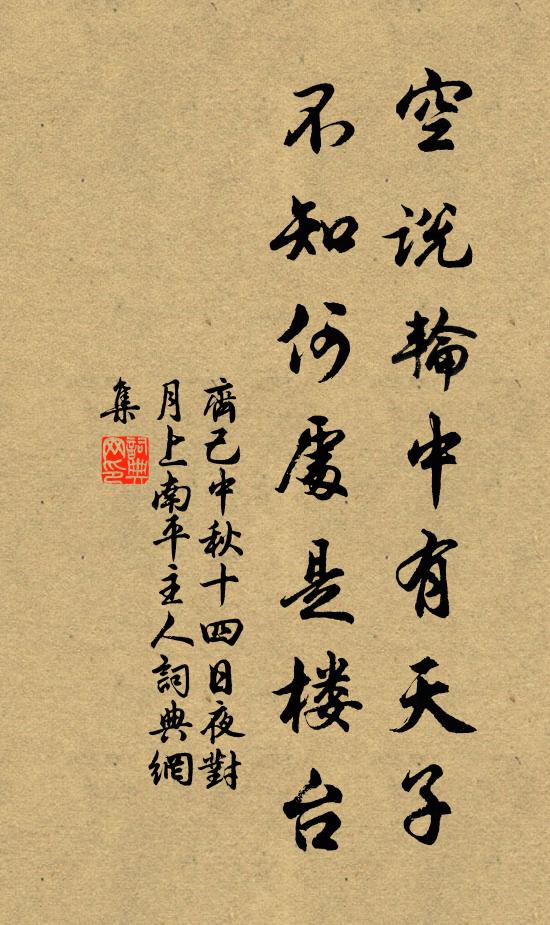 空説輪中有天子
不知何處是楼台
齊己中秋十四日夜對
月上南平主人詞典網
集
詞典
网印